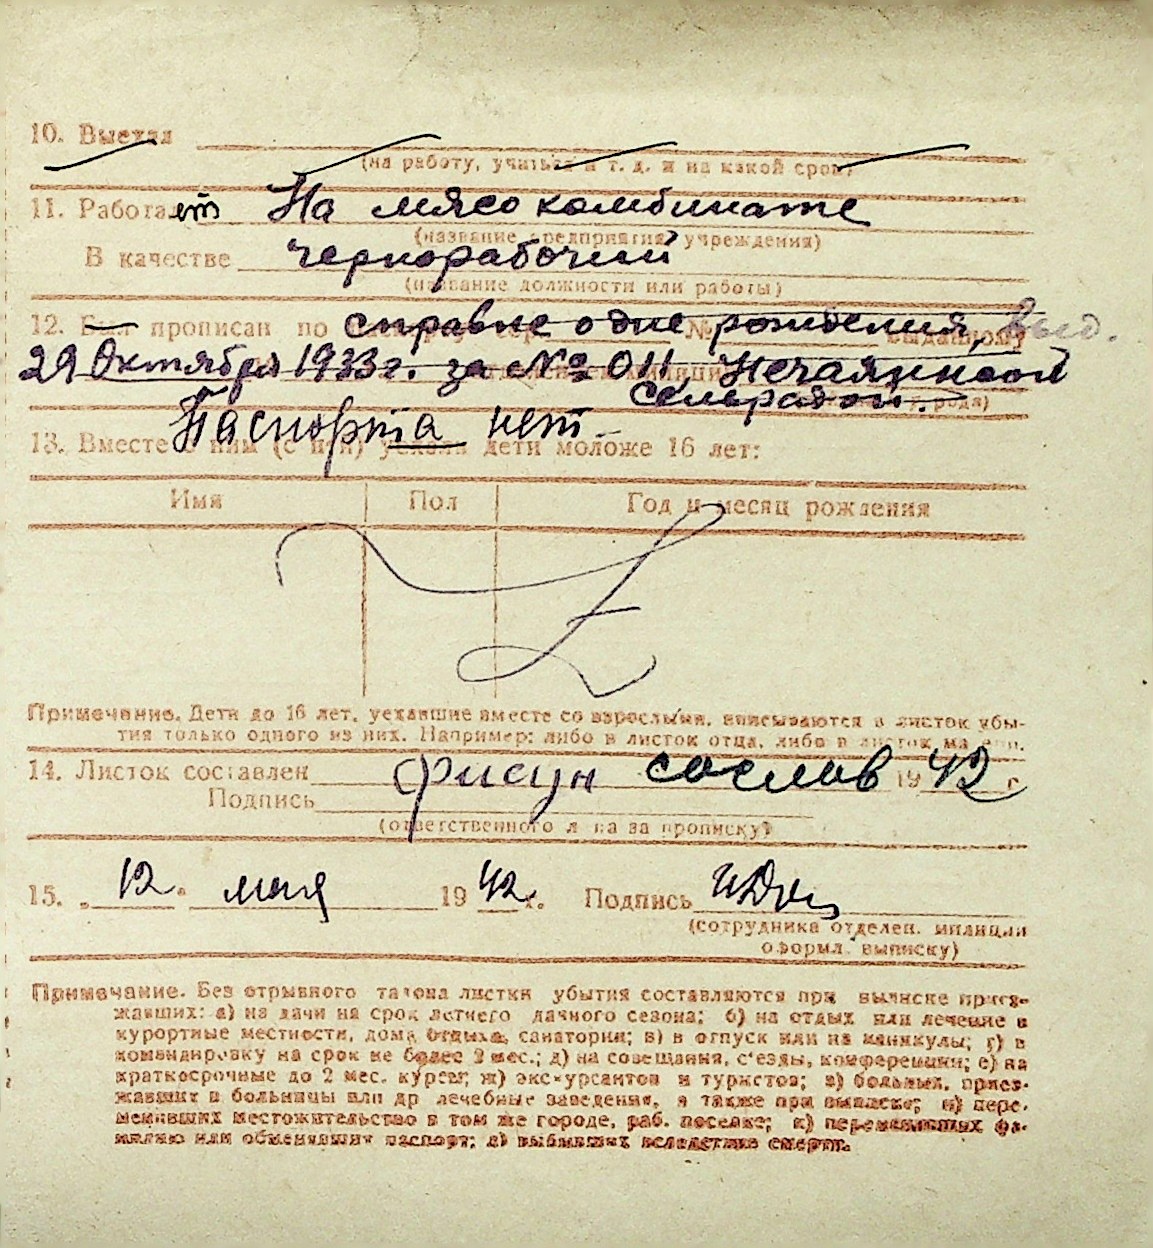 10. Выехал
(на работу, учиться и т. д. и на какой срок)
11. Работает На мясокомбинате
(название предприятия, учреждения)
В качестве чернорабочий
(название должности или работы)
12. Был прописан по справке о дне рождения, выд.
№ выданному
29 Октября 1933 г. за № 011, Нечаянной
семрадой.
Паспорта нет
13. Вместе с ним (с ней) уехали дети моложе 16 лет:
Имя Пол Год и месяц рождения
Примечание. Дети до 16 лет, уехавшие вместе со взрослыми, вписываются в листок убы-
тия только одного из них. Например: либо в листок отца, либо в листок матери.
14. Листок составлен 1942 г
Подпись
(ответственного лица за прописку)
15. „12" мая 1942 г. Подпись
(сотрудника отделен. милиции
оформл. выписку)
Примечание. Без отрывного талона листки убытия составляются при выписке приез-
жавших: а) на дачи на срок летнего дачного сезона; б) на отдых или лечение в
курортные местности, дома отдыха, санатории; в) в отпуск или на каникулы; г) в
командировку на срок не более 2 мес.; д) на совещания, с'езды, конференции; е) на
краткосрочные до 2 мес. курсы; ж) экскурсантов и туристов; з) больных, приез-
жавших в больницы или др лечебные заведения, а также при выписке; и) пере-
менивших местожительство в том же городе, раб. поселке; к) переменивших фа-
милию или обменявших паспорт; л) выбывших вследствие смерти.